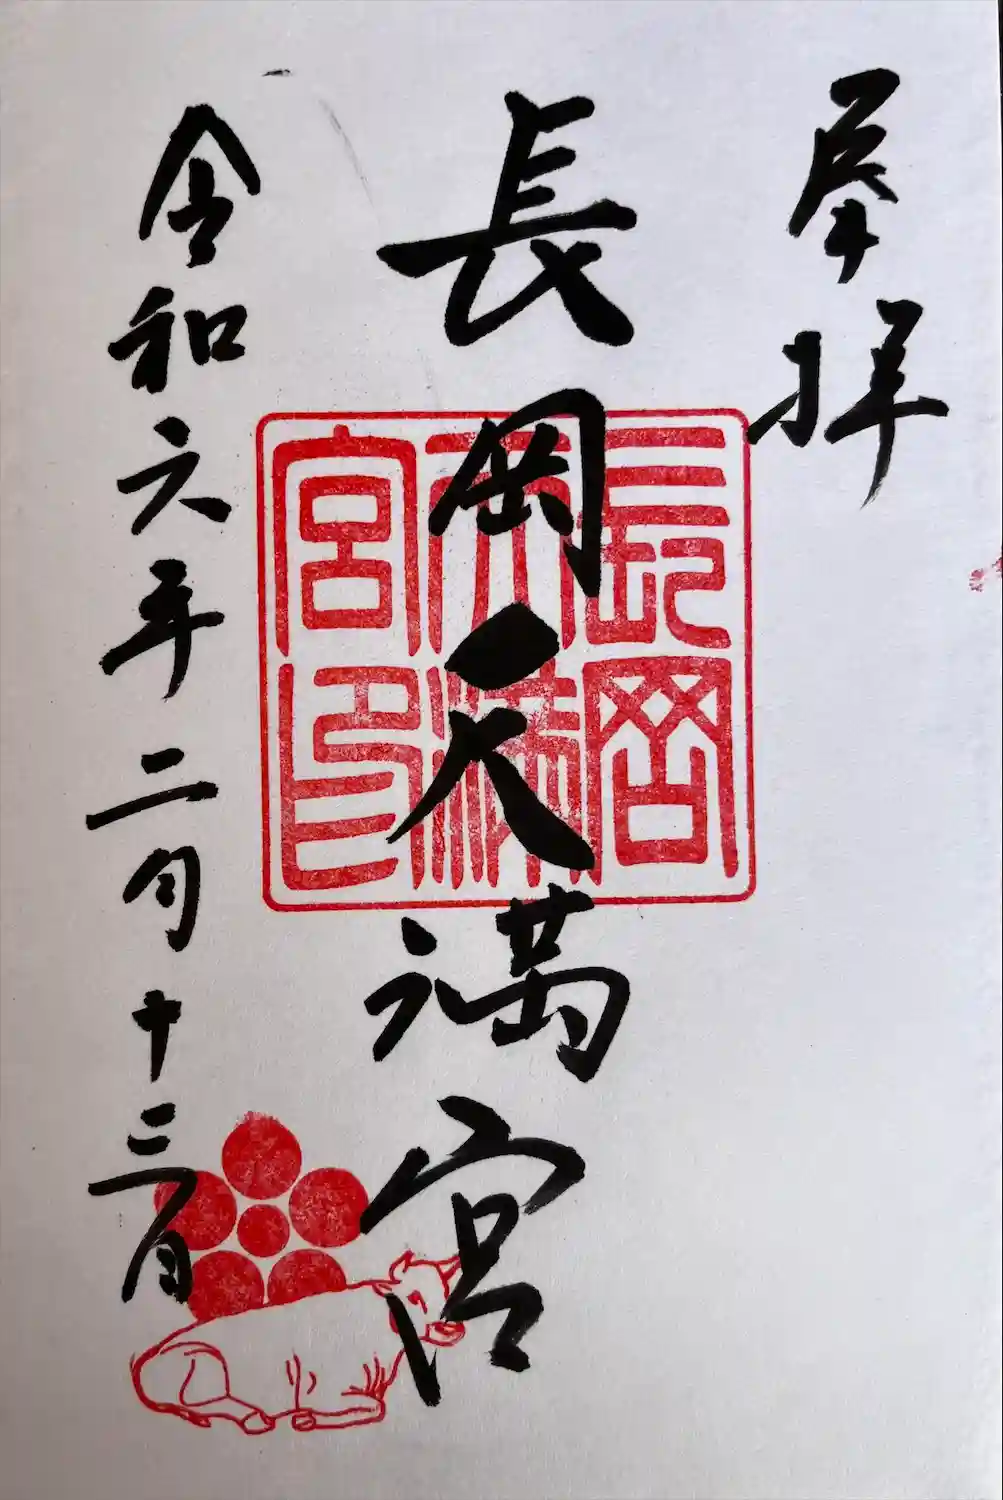 奉拝
長岡天満宮
長岡天満宮印
令和六年二月十三日